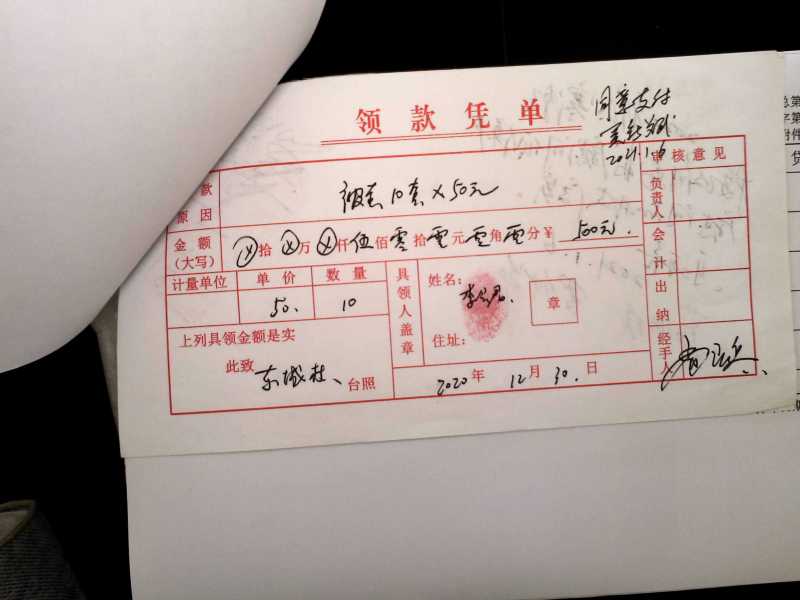 领款凭单
同意支付
2021.1.6
审核意见
款
原因
10套×50元
金额
(大写)
拾 万 仟 伍 佰 零 拾 零 元 零 角 零 分 ¥ 500元.
计量单位 单价 数量
50. 10
上列具领金额是实
此致 台照
具领人盖章
姓名: 李
章
住址:
2020年 12月 30.日
负责人
会计
出纳
经手人
总第
字第
附件
贷